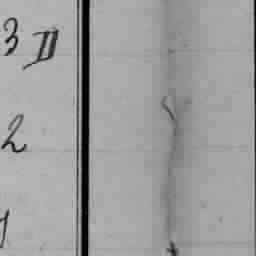 3 II
2
1